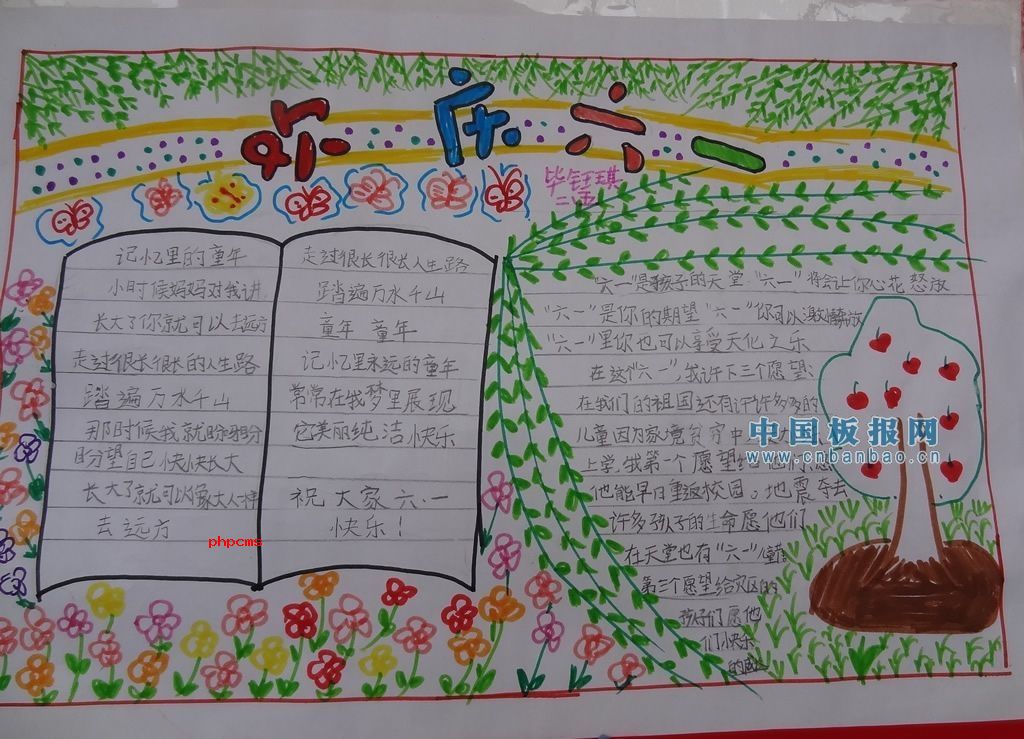 欢庆六一
毕钰琪
记忆里的童年
小时候妈妈对我讲
长大了你就可以去远方
走过很长很长的人生路
踏遍万水千山
那时候我就盼呀盼
盼望自己快快长大
长大了就可以像大人一样
去远方
phpcms
走过很长很长人生路
踏遍万水千山
童年 童年
记忆里永远的童年
常常在我梦里展现
它美丽纯洁快乐
祝大家六·一
快乐!
"六一"是孩子的天堂."六一"将会让你心花怒放
"六一"是你的期望"六一"你可以
"六一"里你也可以享受天伦之乐
在这个"六一",我许下三个愿望:
在我们的祖国还有许许多多的
儿童因为家境贫穷中
上学.我第一个愿望给他们.愿
他能早日重返校园。地震夺去
许多孩子的生命愿他们
在天堂也有"六一"儿童
第三个愿望给灾区的
孩子们愿他
们快乐
的
中国板报网
www.cnbanbao.cn